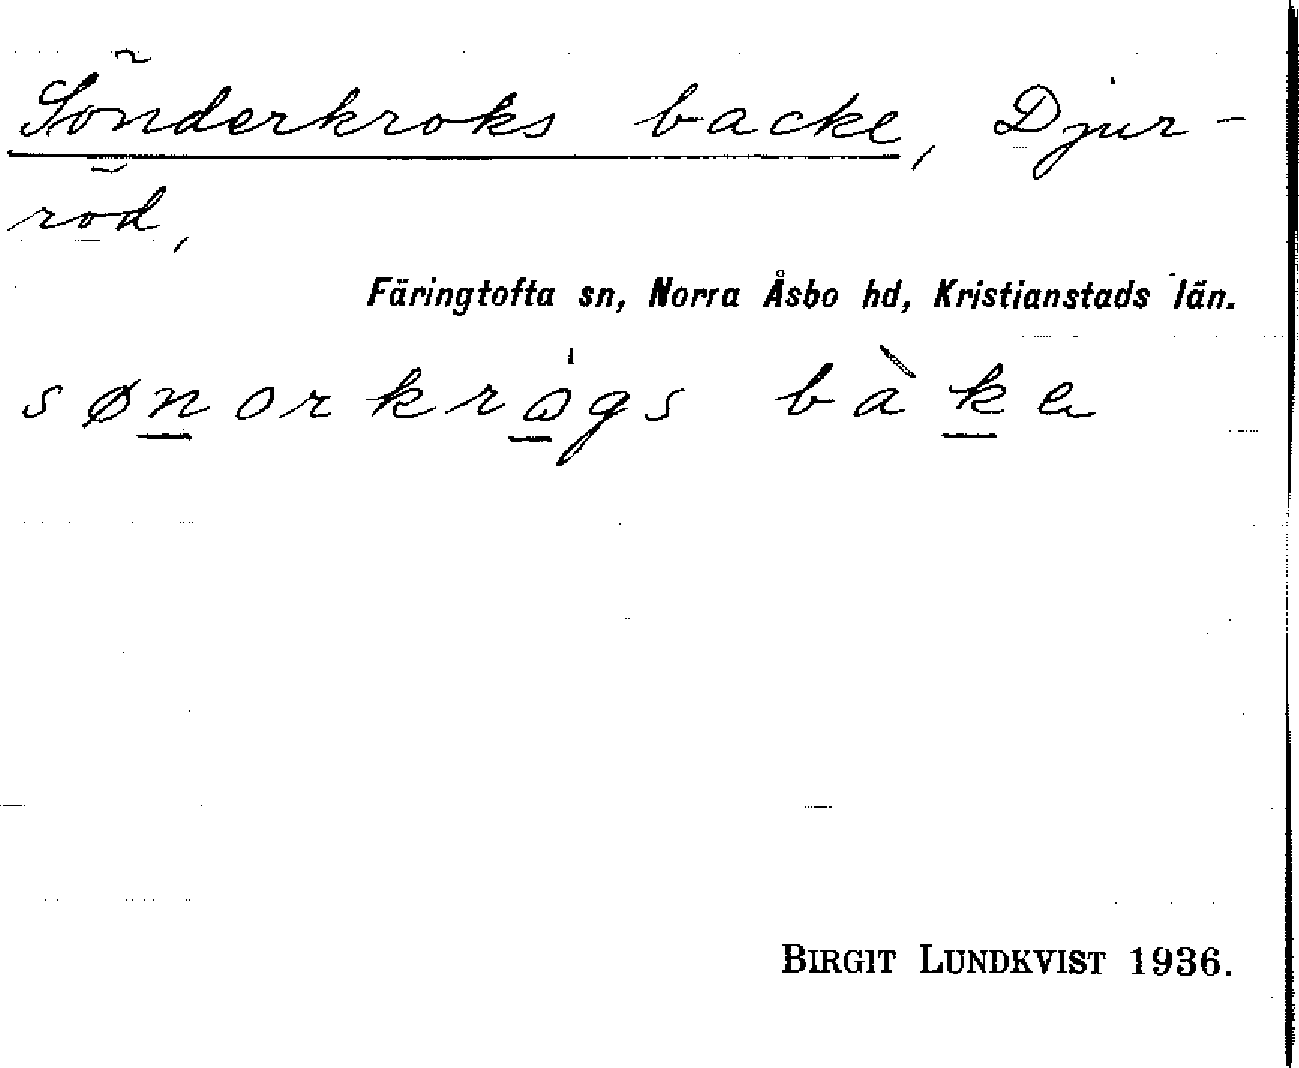 Sönderkroks backe, Djur-
röd,
Färingtofta sn, Norra Åsbo hd, Kristianstads län.
sønorkrågs bàke
BIRGIT LUNDKVIST 1936.